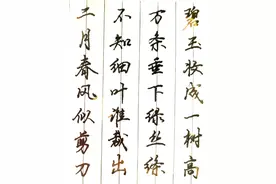 碧玉妆成一树高
万条垂下绿丝绦
不知细叶谁裁出
二月春风似剪刀